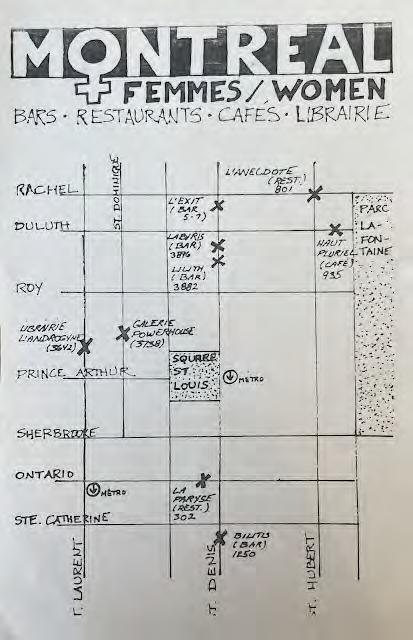 MONTREAL
FEMMES/WOMEN
BARS · RESTAURANTS · CAFÉS · LIBRAIRIE
L'ANECDOTE
(REST.)
801
RACHEL
ST. DOMINIQUE
L'EXIT
(BAR
5-7)
PARC
LA-
FON-
TAINE
DULUTH
LABYRIS
(BAR)
3896
HAUT
PLURIEL
(CAFÉ)
935
LILITH
(BAR)
3882
ROY
LIBRAIRIE
L'ANDROGYNE
(3642)
GALERIE
POWERHOUSE
(3738)
SQUARE
ST
LOUIS
PRINCE ARTHUR
METRO
SHERBROOKE
ONTARIO
METRO
LA
PARYSE
(REST.)
302
STE. CATHERINE
BILITIS
(BAR)
1250
T. LAURENT
T. DENIS
T. HUBERT